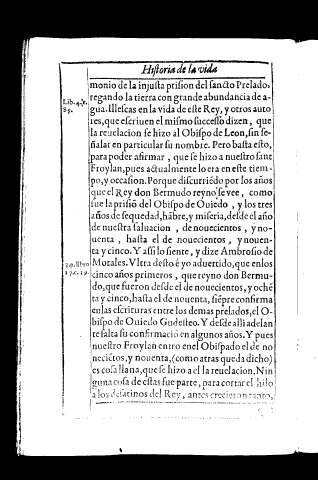 Historia de la vida
monio de la injusta prision del sancto Prelado,
regando la tierra con grande abundancia de a-
gua. Illescas en la vida de este Rey, y otros auto
res, que escriuen el mismo successo dizen, que
la reuelacion se hizo al Obispo de Leon, sin se-
ñalar en particular su nombre. Pero basta esto,
para poder afirmar, que se hizo a nuestro sant
Froylan, pues actualmente lo era en este tiem-
po, y occasion. Porque discurriẽdo por los años
que el Rey don Bermudo reyno se vee, como
fue la prisiõ del Obispo de Ouiedo, y los tres
años de sequedad, hãbre, y miseria, desde el año
de nuestra saluacion, de nouecientos, y no-
uenta, hasta el de nouecientos, y nouen-
ta y cinco. Y assi lo siente, y dize Ambrosio de
Morales. Vltra desto è yo aduertido, que en los
cinco años primeros, que reyno don Bermu-
do, que fueron desde el de nouecientos, y ochẽ
ta y cinco, hasta el de nouenta, siẽpre confirma
en las escrituras entre los demas prelados, el O-
bispo de Ouiedo Gudesteo. Y desde alli adelan
te falta su confirmaciõ en algunos años. Y pues
nuestro Froylan entro en el Obispado el de no
neciẽtos, y nouenta, (como atras queda dicho)
es cosa llana, que se hizo a el la reuelacion. Nin
guna cosa de estas fue parte, para cortar el hilo
a los desatinos del Rey, antes crecieron tanto,
Lib. 4. f.
85.